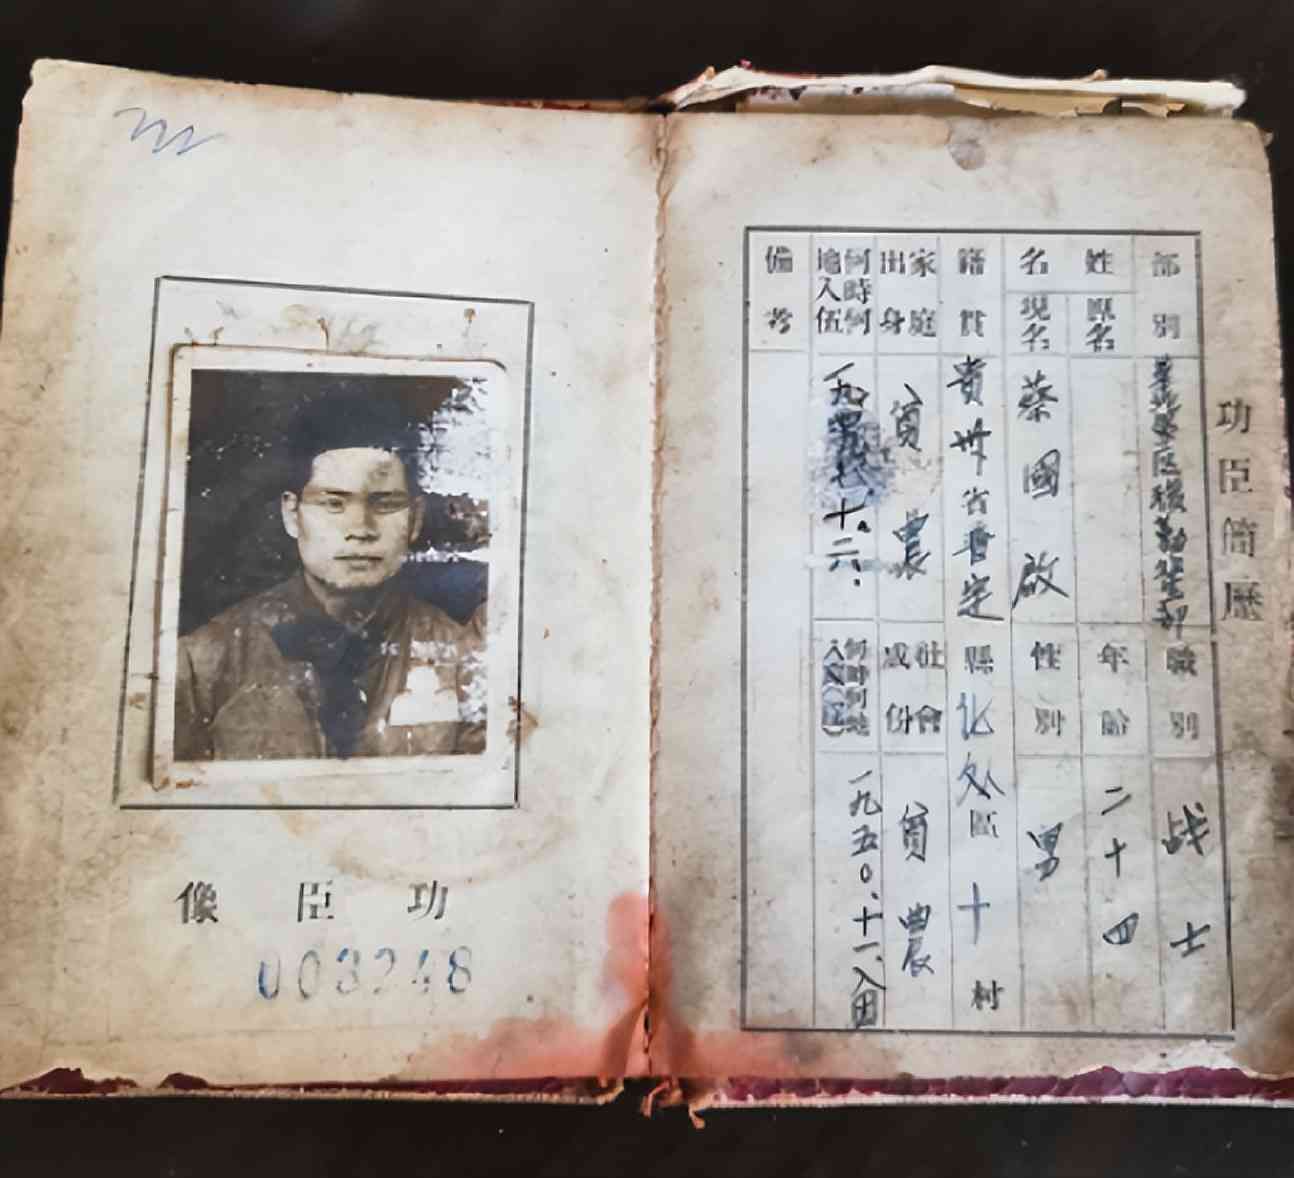 功臣像
003248
功臣簡歷
部別
職別 战士
姓名
原名
年齡 二十四
現名 蔡國啟
性別 男
籍貫 貴州省普定縣化处區十村
家庭出身 貧農
社會成份 貧農
何時何地入伍
十、二八、
一九五〇、十一、入团
備考